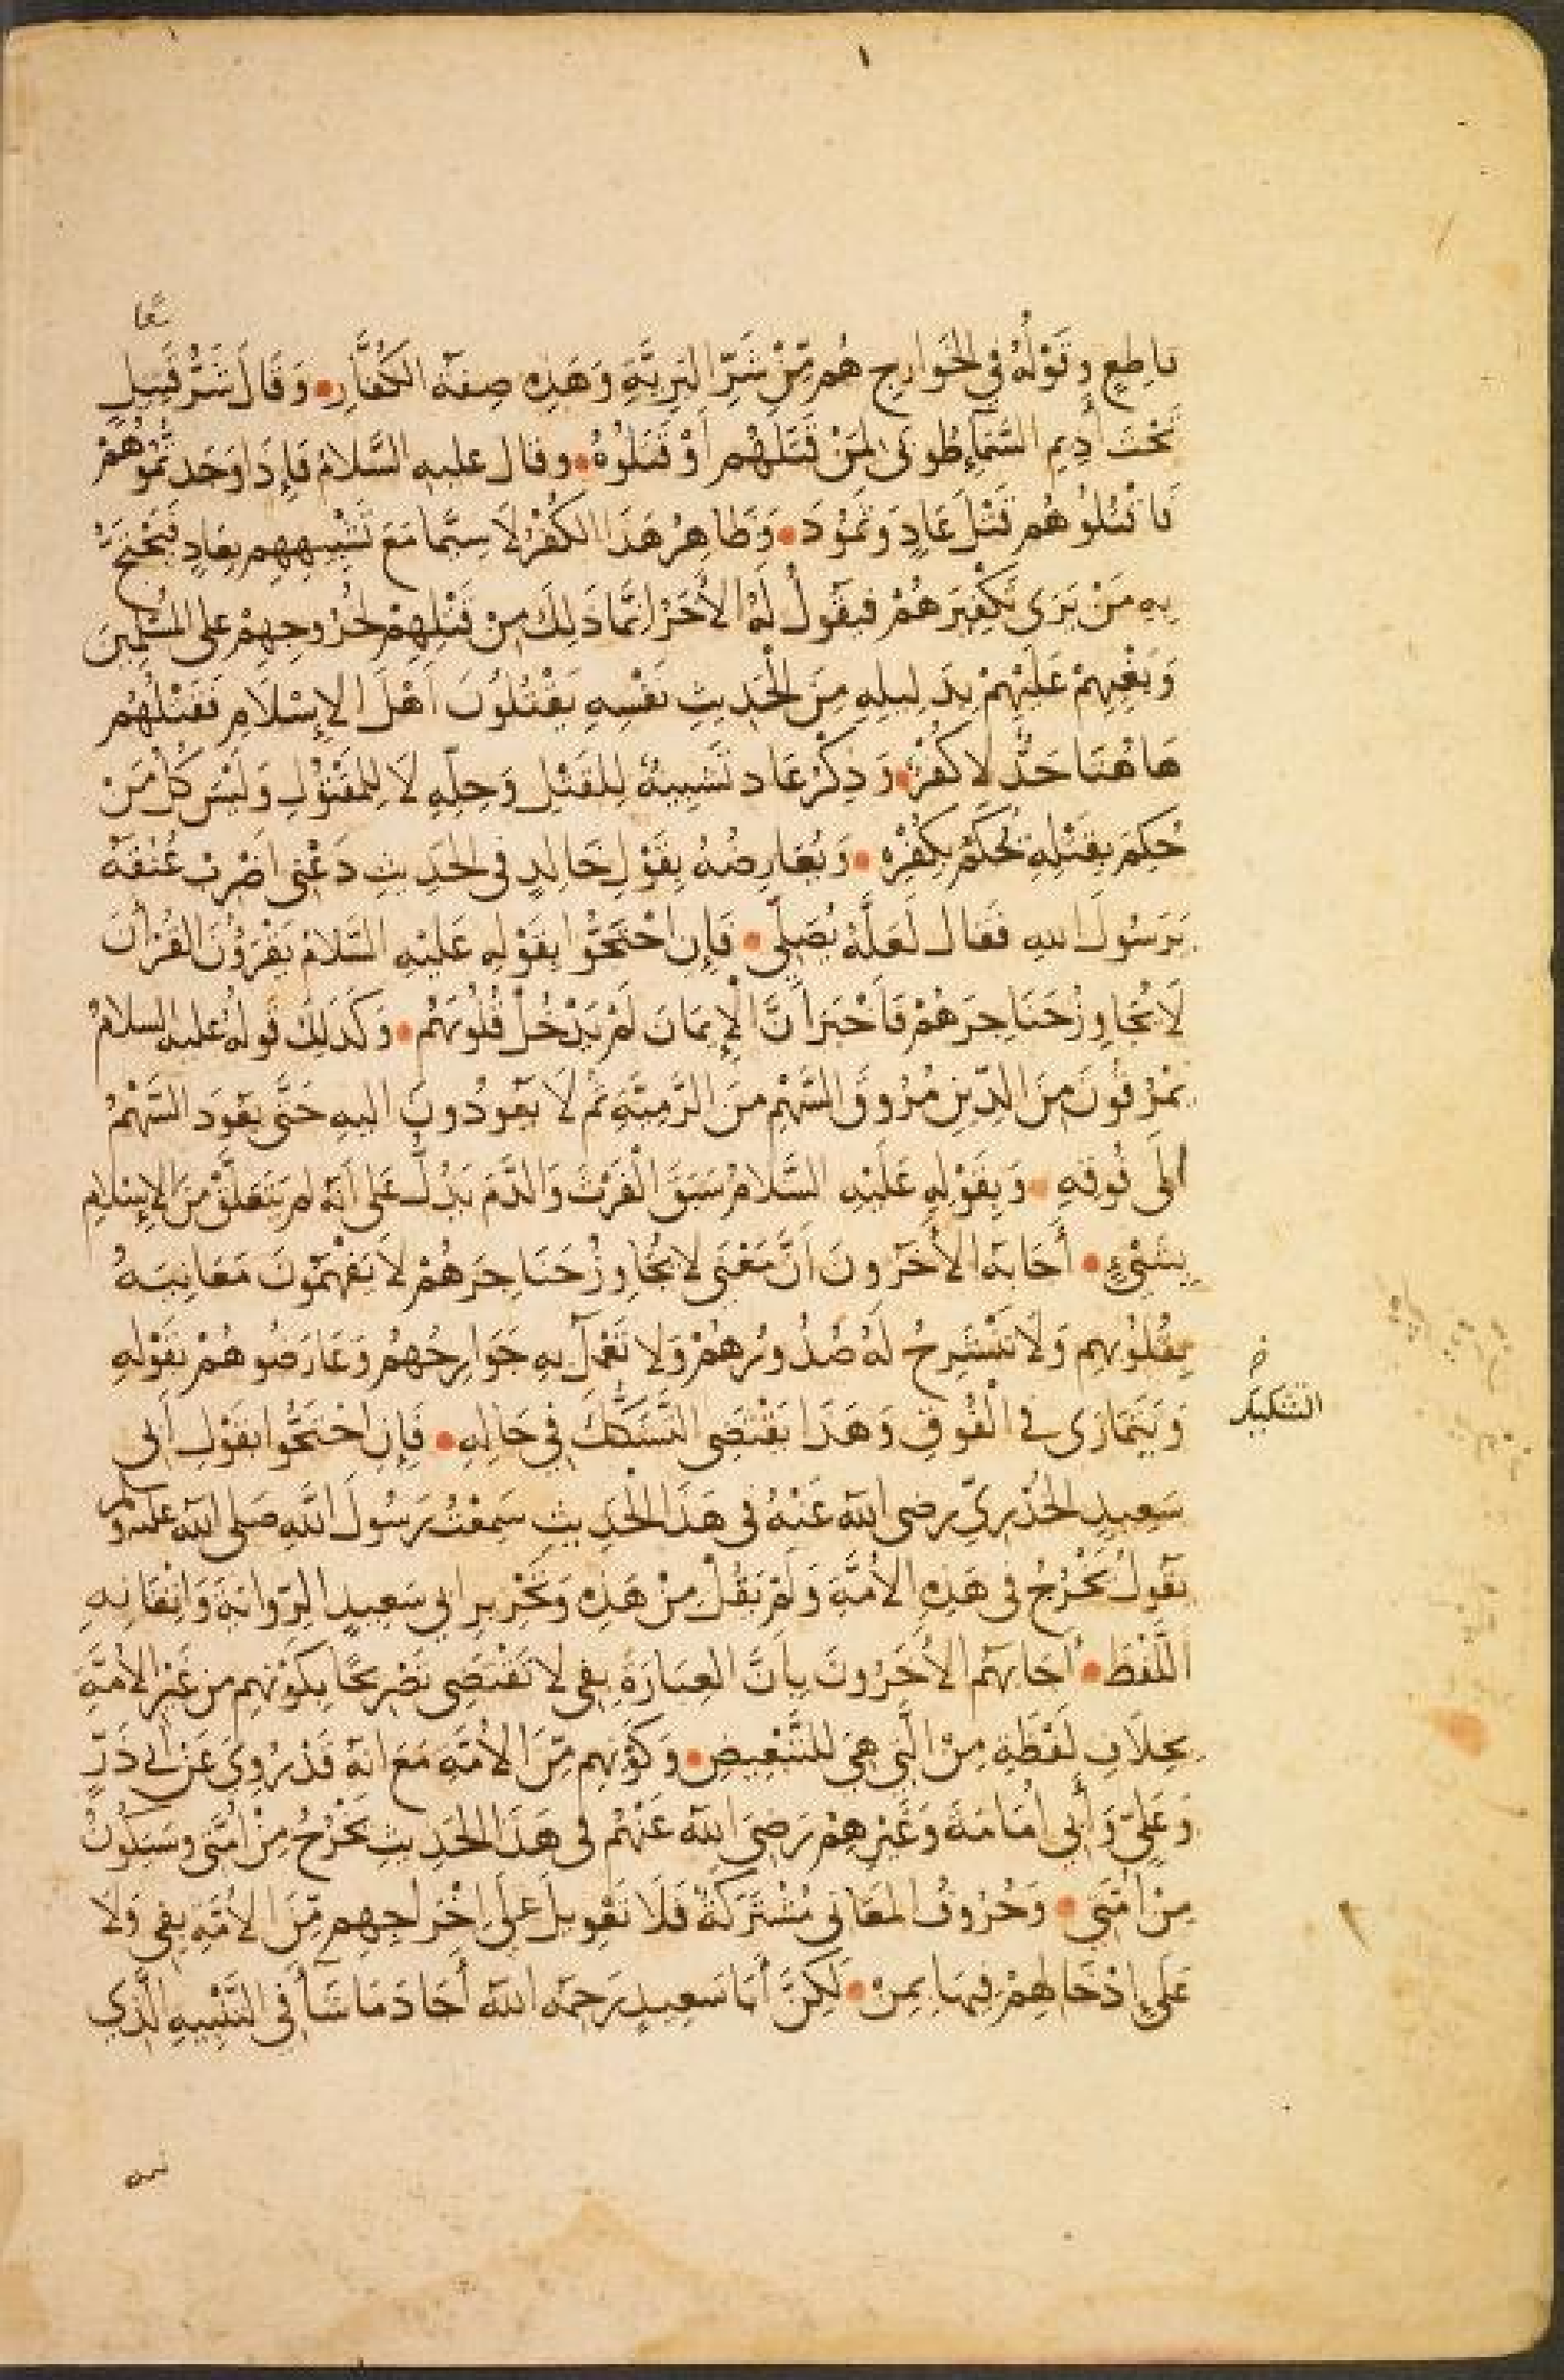 ١
معا
قاطعٍ وقَوْلُهُ في الخَوارِجِ هُم مِّنْ شَرِّ البَرِيَّةِ وَهَذِهِ صِفَةُ الكُفَّارِ • وَقَالَ شَرُّ قَبِيلٍ
تَحْتَ أَدِيمِ السَّمَاءِ طُوبَى لِمَنْ قَتَلَهُم أَوْ قَتَلُوهُ • وقال عليه السَّلامُ فَإِذَا وَجَدتُمُوهُمْ
فَاقْتُلُوهُم قَتْلَ عَادٍ وَثَمُودَ • وَظَاهِرُ هَذَا الكُفْرُ لَا سِيَّمَا مَعَ تَشْبِيهِهِم بِعَادٍ فَيَحْتَجُّ
بِهِ مَنْ يَرَى تَكْفِيرَهُمْ فَيَقُولُ لَهُ الآخَرُ إِنَّمَا ذَلِكَ مِنْ قَتْلِهِمْ لِخُرُوجِهِمْ على المُسْلِمِينَ
وَبَغْيِهِمْ عَلَيْهِمْ بِدَلِيلِهِ مِنَ الْحَدِيثِ نَفْسِهِ يَقْتُلُونَ أَهْلَ الإِسْلَامِ فَقَتْلُهُم
هَاهُنَا حَدٌّ لَا كُفْرٌ • وَذِكْرُ عَادٍ تَشْبِيهٌ لِلقَتْلِ وَحِلِّهِ لَا لِلمَقْتُولِ وَلَيْسَ كُلُّ مَنْ
حُكِمَ بِقَتْلِهِ يُحْكَمُ بِكُفْرِهِ • وَيُعَارِضُهُ بِقَوْلِ خَالِدٍ في الحَدِيثِ دَعْنِي أَضْرِبْ عُنُقَهُ
يَرَسُولَ اللهِ فَقَالَ لَعَلَّهُ يُصَلِّي • فَإِنِ احْتَجُّوا بِقَوْلِهِ عَلَيْهِ السَّلَامُ يَقْرَؤُنَ القُرْآنَ
لَا يُجَاوِزُ حَنَاجِرَهُمْ فَأَخْبَرَ أَنَّ الْإِيمَانَ لَمْ يَدْخُلْ قُلُوبَهُم • وَكَذَلِكَ قَولُهُ عليه السلامُ
يَمْرُقُونَ مِنَ الدِّينِ مُرُوقَ السَّهْمِ مِنَ الرَّمِيَّةِ ثُمَّ لَا يَعُودُونَ إليهِ حَتَّى يَعُودَ السَّهْمُ
إلَى فُوقِهِ • وَبِقَوْلِهِ عَلَيْهِ السَّلَامُ سَبَقَ الْفَرْثَ وَالدَّمَ يَدُلُّ عَلى أَنَّهُ لم يَتَعَلَّقْ مِنَ الإِسْلَامِ
بِشَيْءٍ • أَجَابَهُ الآخَرُونَ أَنَّ مَعْنَى لا يُجَاوِزُ حَنَاجِرَهُمْ لَا يَفْهَمُونَ مَعَانِيَهُ
بِقُلُوبِهِم وَلَا تَنْشَرِحُ لَهُ صُدُورُهُمْ وَلا تَعْمَلُ بِهِ جَوَارِحُهُمْ وَعَارَضُوهُمْ بقَوْلِهِ
وَيَتَمَارَى في الْفُوقِ وَهَذَا يَقْتَضِي التَّشَكُّكَ في حَالِهِ • فَإِنِ احْتَجُّوا بقَوْلِ أَبِي
خ
التشكيك
سَعِيدٍ الخُدْرِيِّ رضي اللهُ عَنْهُ في هَذَا الْحَدِيثِ سَمِعْتُ رَسُولَ اللَّهِ صَلى اللهُ عليه وسلم
يَقُولُ يَخْرُجُ في هَذِهِ الأُمَّةِ وَلَمْ يَقُلْ مِنْ هَذِهِ وَتَحْرِيرِ أبي سَعِيدٍ الرِّوَايَةَ وَإِتْقَانِهِ
اللَّفْظَ • أَجَابَهُم الآخَرُونَ بِأَنَّ العِبَارَةَ بِفِي لا تَقْتَضِي تَصْرِيحًا بِكَوْنِهِم مِن غَيْرِ الأُمَّةِ
بِخِلَافِ لَفْظَةِ مِنْ الَّتِي هِيَ لِلتَّبْعِيضِ • وَكَوْنِهِم مِّنَ الأُمَّةِ مَعَ انهُ قَدْ رُوِيَ عَنْ أَبِي ذَرٍّ
وَعَلِيٍّ وَأَبِي أُمَامَةَ وَغَيْرِهِمْ رَضِيَ اللهُ عَنْهُم في هَذَا الحَدِيثِ يَخْرُجُ مِنْ أُمَّتِي وسَيَكُونُ
مِنْ أُمَّتِي • وَحُرُوفُ المَعَانِي مُشْتَرَكَةٌ فَلَا تَعْوِيلَ عَلَى إِخْرَاجِهِم مِّنَ الأُمَّةِ بِفِي وَلَا
عَلَى إِدْخَالِهِمْ فِيهَا بِمِنْ • لَكِنَّ أَبَا سَعِيدٍ رَحِمَهُ اللهُ أَجَادَ مَا شَآءَ في التَّنْبِيهِ الَّذِي